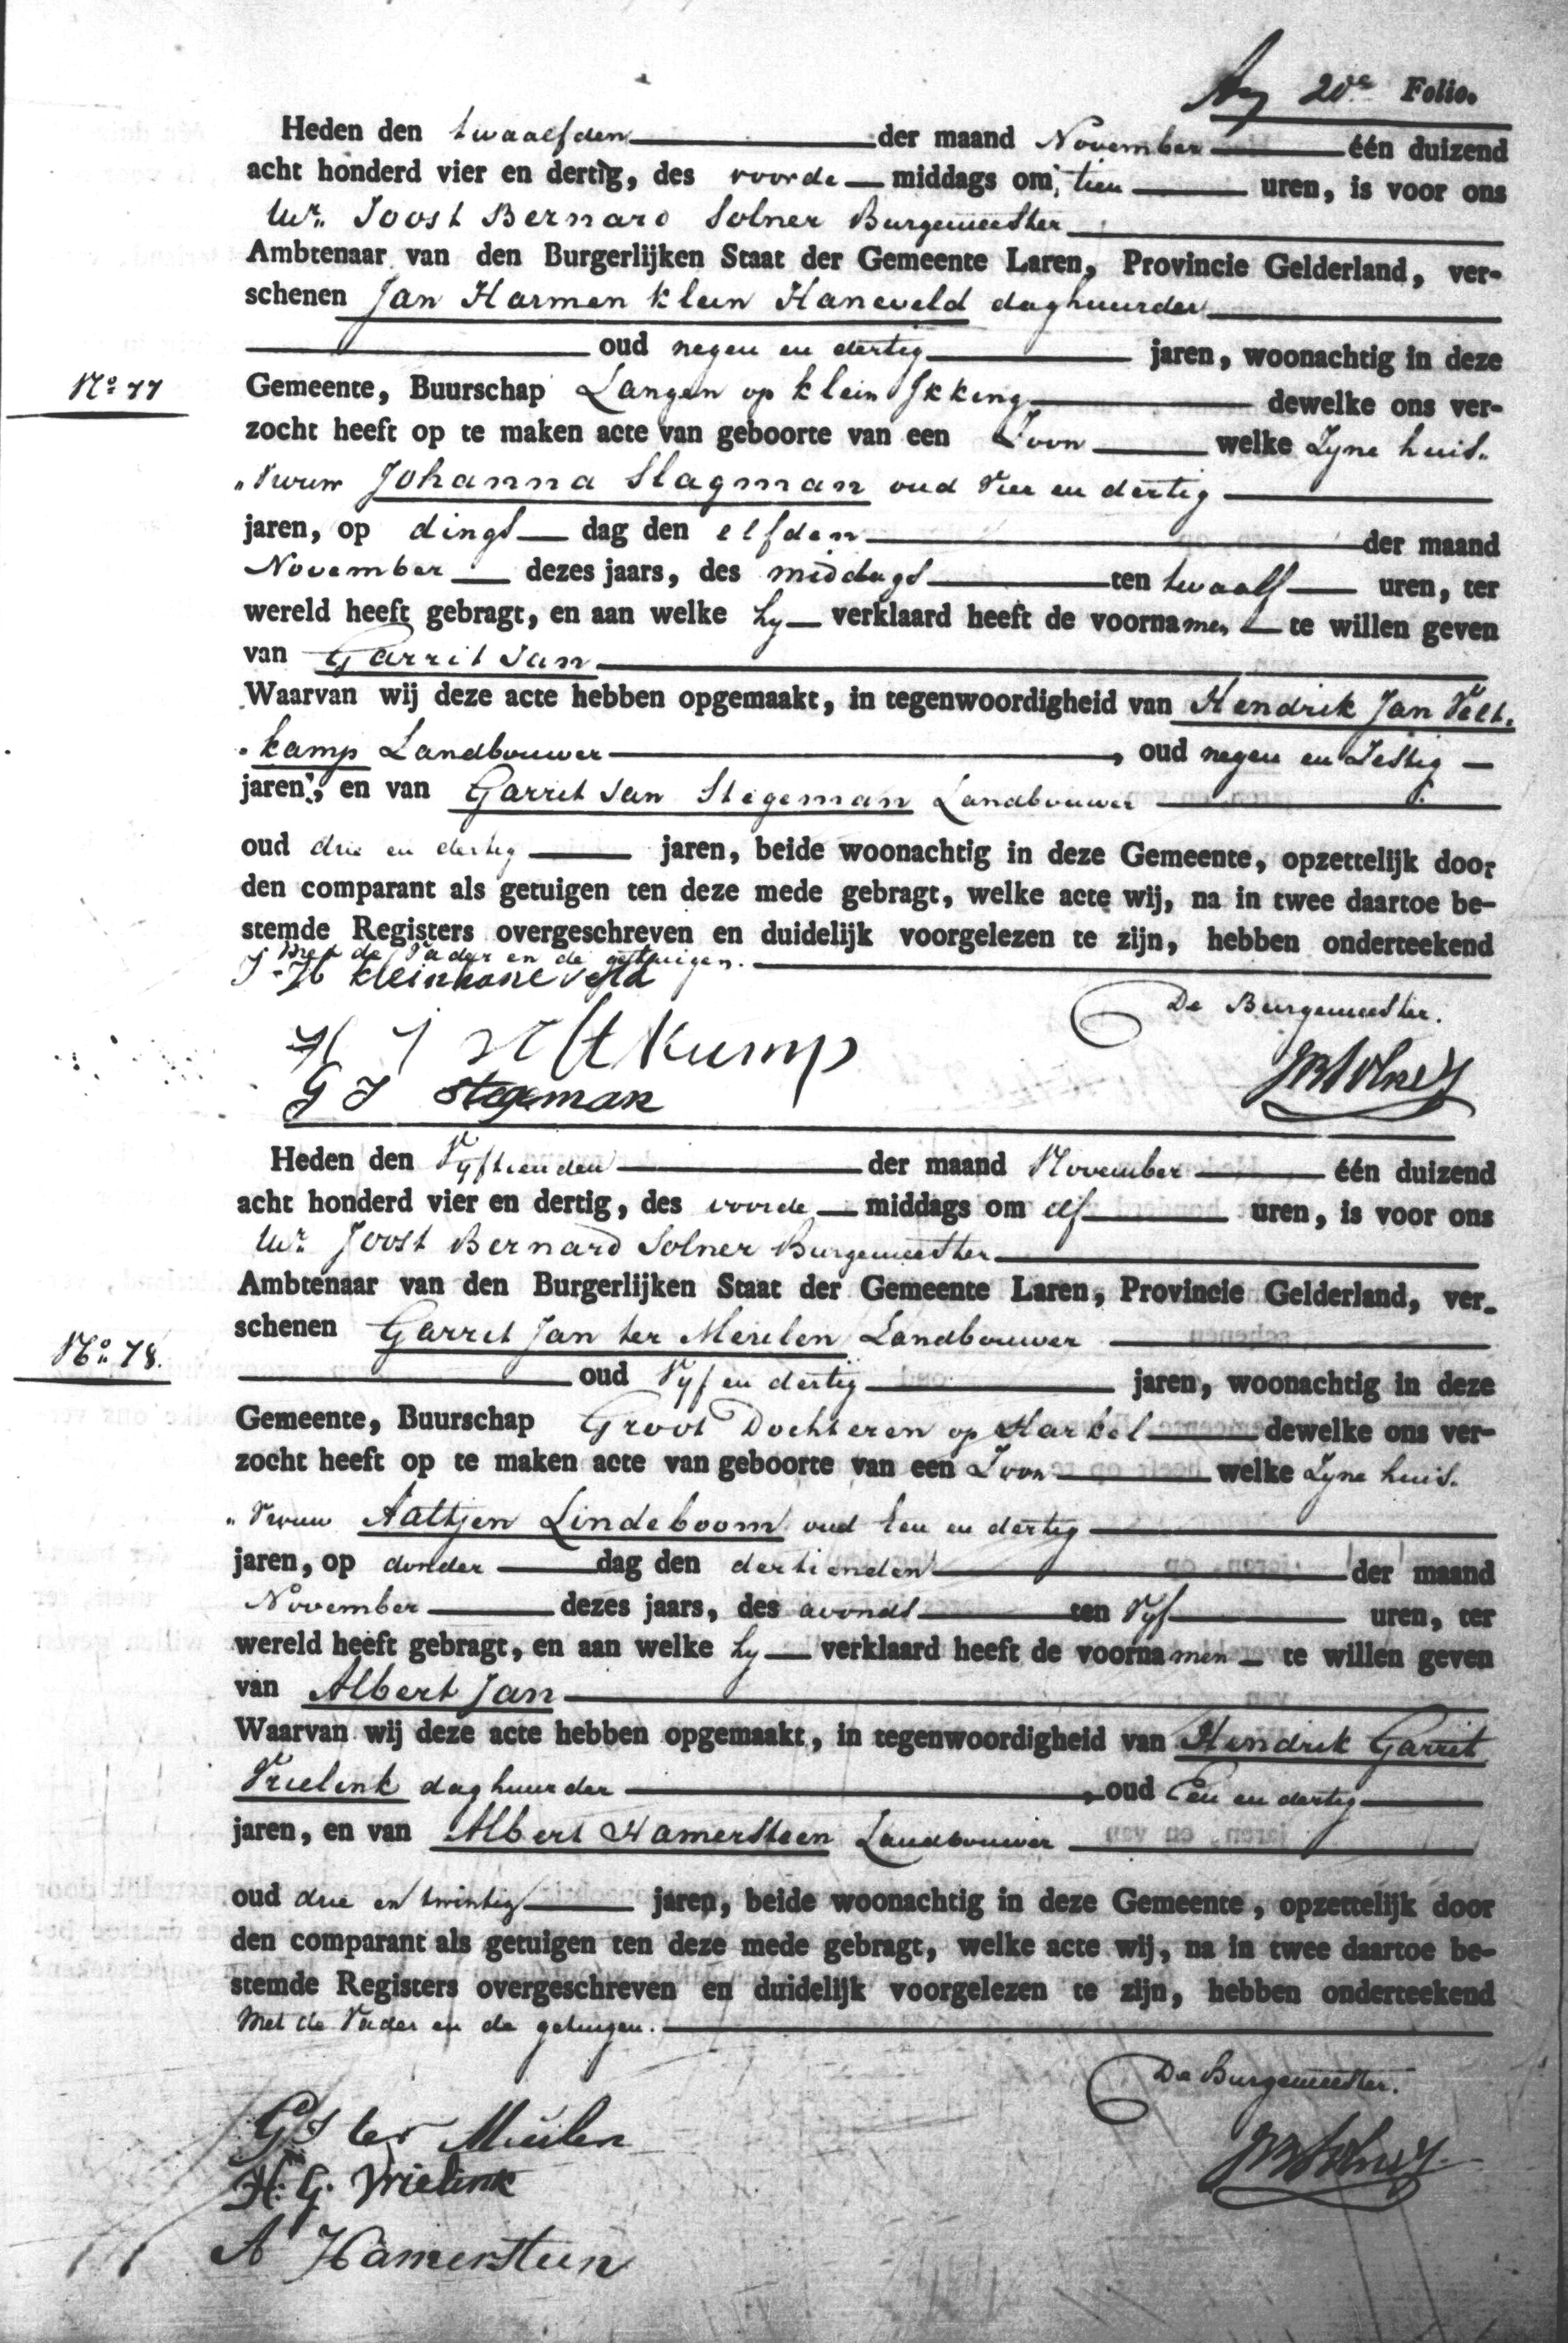 20de Folio.
Heden den twaalfden der maand November één duizend
acht honderd vier en dertig, des voorde middags om tien uren, is voor ons
Mr. Joost Bernard Solner Burgemeester
Ambtenaar van den Burgerlijken Staat der Gemeente Laren, Provincie Gelderland, ver-
schenen Jan Harmen klein Haneveld daghuurder
oud negen en dertig jaren, woonachtig in deze
No. 77
Gemeente, Buurschap Langen op klein Ikking dewelke ons ver-
zocht heeft op te maken acte van geboorte van een Zoon welke Zyne huis-
„Vrouw Johanna Slagman oud Vier en dertig
jaren, op dings dag den elfden der maand
November dezes jaars, des middags ten twaalf uren, ter
wereld heeft gebragt, en aan welke hy verklaard heeft de voornamen te willen geven
van Garrit Jan
Waarvan wij deze acte hebben opgemaakt, in tegenwoordigheid van Hendrik Jan Velt-
kamp Landbouwer, oud negen en Zestig
jaren, en van Garrit Jan Stegeman Landbouwer
oud drie en dertig jaren, beide woonachtig in deze Gemeente, opzettelijk door
den comparant als getuigen ten deze mede gebragt, welke acte wij, na in twee daartoe be-
stemde Registers overgeschreven en duidelijk voorgelezen te zijn, hebben onderteekend
Met de Vader en de getuigen.
J H kleinhaneveld
De Burgemeester.
H J Veltkamp
JBSolner
G J Stegeman
Heden den Vyftienden der maand November één duizend
acht honderd vier en dertig, des voorde middags om elf uren, is voor ons
Mr. Joost Bernard Solner Burgemeester
Ambtenaar van den Burgerlijken Staat der Gemeente Laren, Provincie Gelderland, ver-
schenen Garrit Jan ter Meulen Landbouwer
No. 78.
oud Vyf en dertig jaren, woonachtig in deze
Gemeente, Buurschap Groot Dochteren op Harkel dewelke ons ver-
zocht heeft op te maken acte van geboorte van een Zoon welke Zyne huis-
„Vrouw Aaltjen Lindeboom oud een en dertig
jaren, op donder dag den dertienden der maand
November dezes jaars, des avonds ten Vyf uren, ter
wereld heeft gebragt, en aan welke hy verklaard heeft de voornamen te willen geven
van Albert Jan
Waarvan wij deze acte hebben opgemaakt, in tegenwoordigheid van Hendrik Garrit
Vrielink daghuurder, oud Een en dertig
jaren, en van Albert Hamersteen Landbouwer
oud drie en twintig jaren, beide woonachtig in deze Gemeente, opzettelijk door
den comparant als getuigen ten deze mede gebragt, welke acte wij, na in twee daartoe be-
stemde Registers overgeschreven en duidelijk voorgelezen te zijn, hebben onderteekend
Met de Vader en de getuigen.
De Burgemeester.
GJ ter Meulen
JBSolner
H. G. Vrielink
A Hamersteen